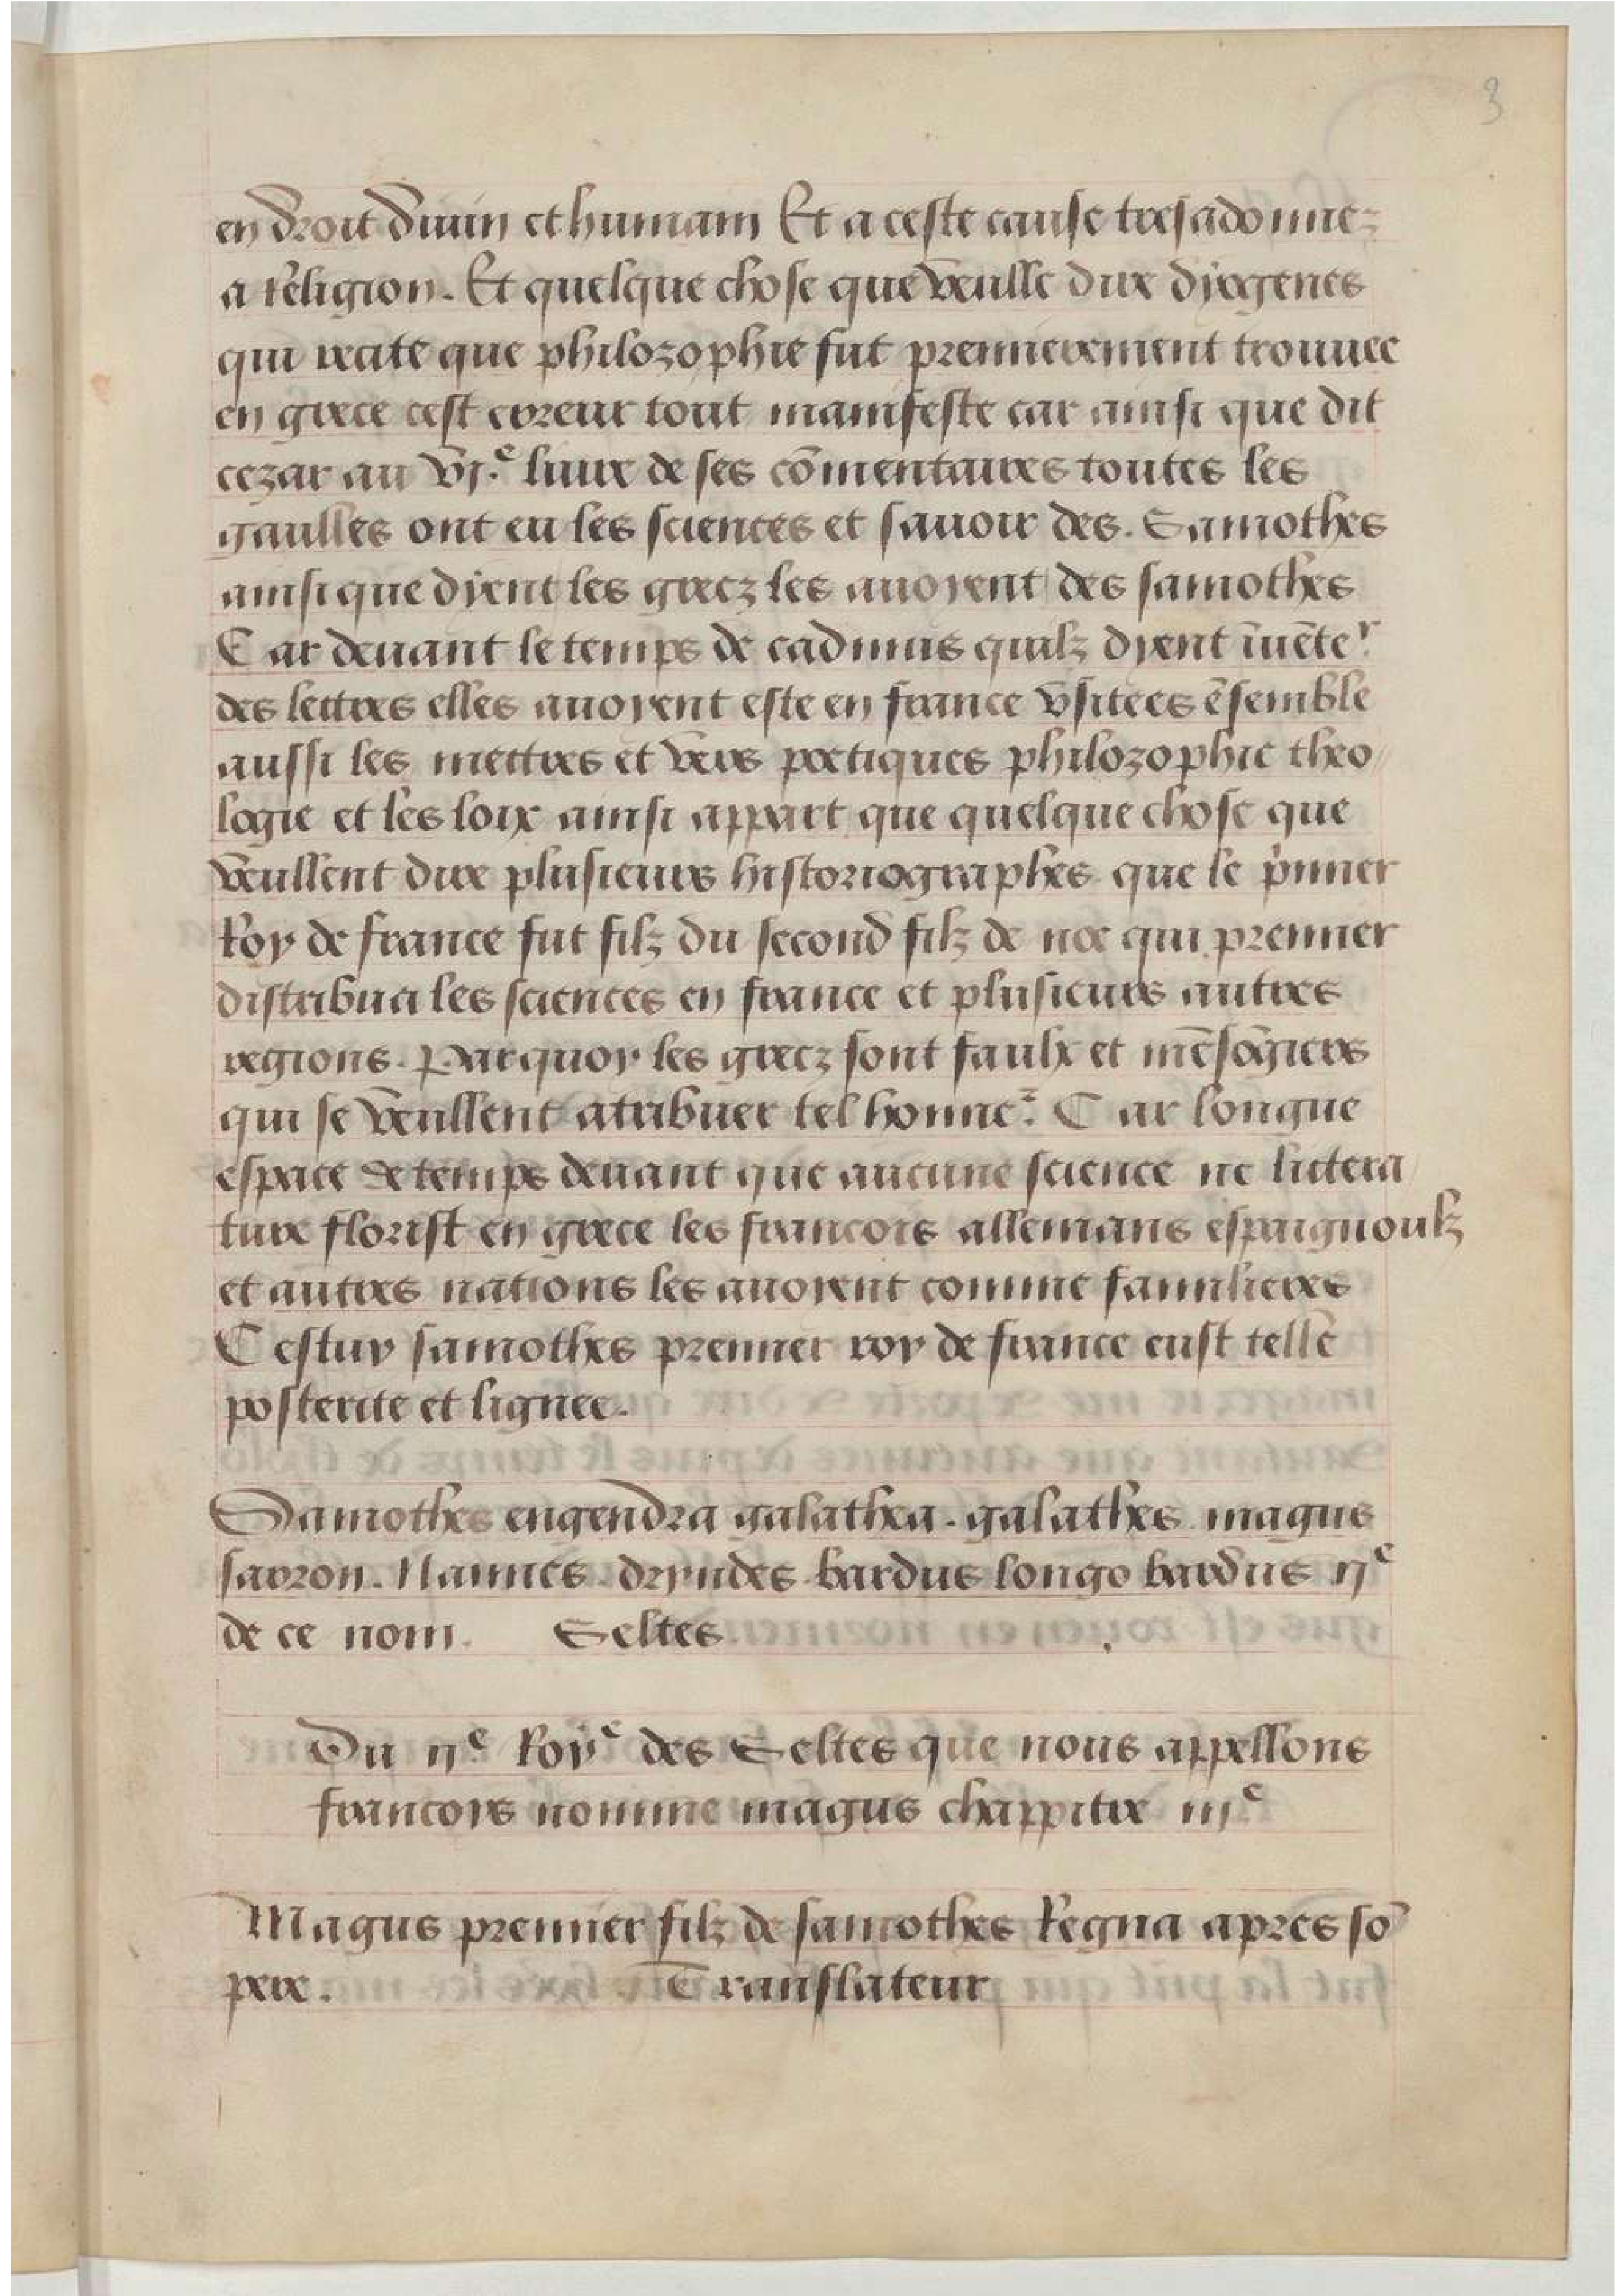 3
en droit diuin et humain Et a ceste cause tresadonnez
a religion. Et quelque chose que veulle dire dyogenes
qui recite que philozophie fut premierement trouuee
en grece cest erreur tout manifeste car ainsi que dit
cezar au vj.e liure de ses cōmentaires toutes les
gaulles ont eu les sciences et sauoir des. Samothes
ainsi que dient les grecz les auoyent des samothes
Car deuant le temps de cadmus quilz dyent īuēter
des lettres elles auoyent este en france vsitees ēsemble
aussi les mettres et vers poetiques philozophie theo
logie et les loix ainsi appart que quelque chose que
veullent dire plusieurs historiographes que le p̄mier
Roy de france fut filz du second filz de noe qui premier
distribua les sciences en france et plusieurs autres
regions. Parquoy les grecz sont faulx et mēsōgiers
qui se veullent atribuer tel honner. Car longue
espace de temps deuant que aucune science ne littera
ture florist en grece les francois allemans espaignoulz
et autres nations les auoyent comme familieres
Cestuy samothes premier roy de france eust telle
posterite et lignee.
Samothes engendra galathea. galathes magus
sarron. Nannes. dryudes bardus longo bardus ije
de ce nom. Seltes.
Du ije Roye des Seltes que nous appellons
francoys nomme magus chappitre iije
Magus premier filz de samothes Regna apres sō
pere. Translateur